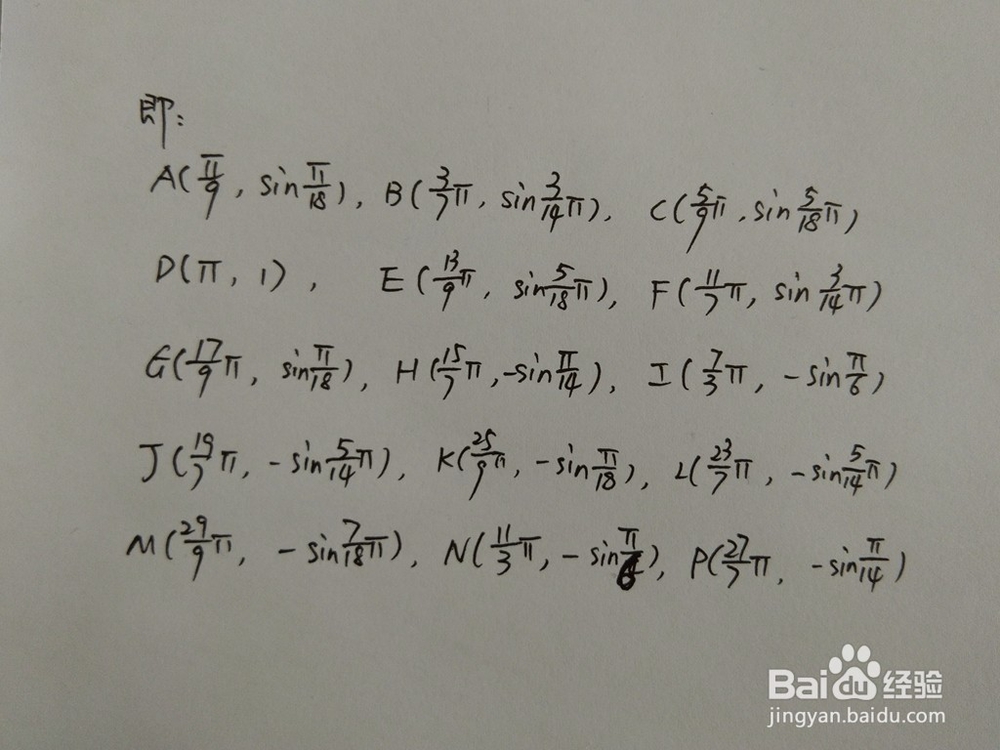 即:
A(π/9, sin π/18), B(3/7π, sin 3/14π), C(5/9π, sin 5/18π)
D(π, 1), E(13/9π, sin 5/18π), F(11/7π, sin 3/14π)
G(17/9π, sin π/18), H(15/7π, -sin π/14), I(7/3π, -sin π/6)
J(19/7π, -sin 5/14π), K(25/9π, -sin π/18), L(23/7π, -sin 5/14π)
M(29/9π, -sin 7/18π), N(11/3π, -sin π/6), P(27/7π, -sin π/14)
Baidu 经验
jingyan.baidu.com